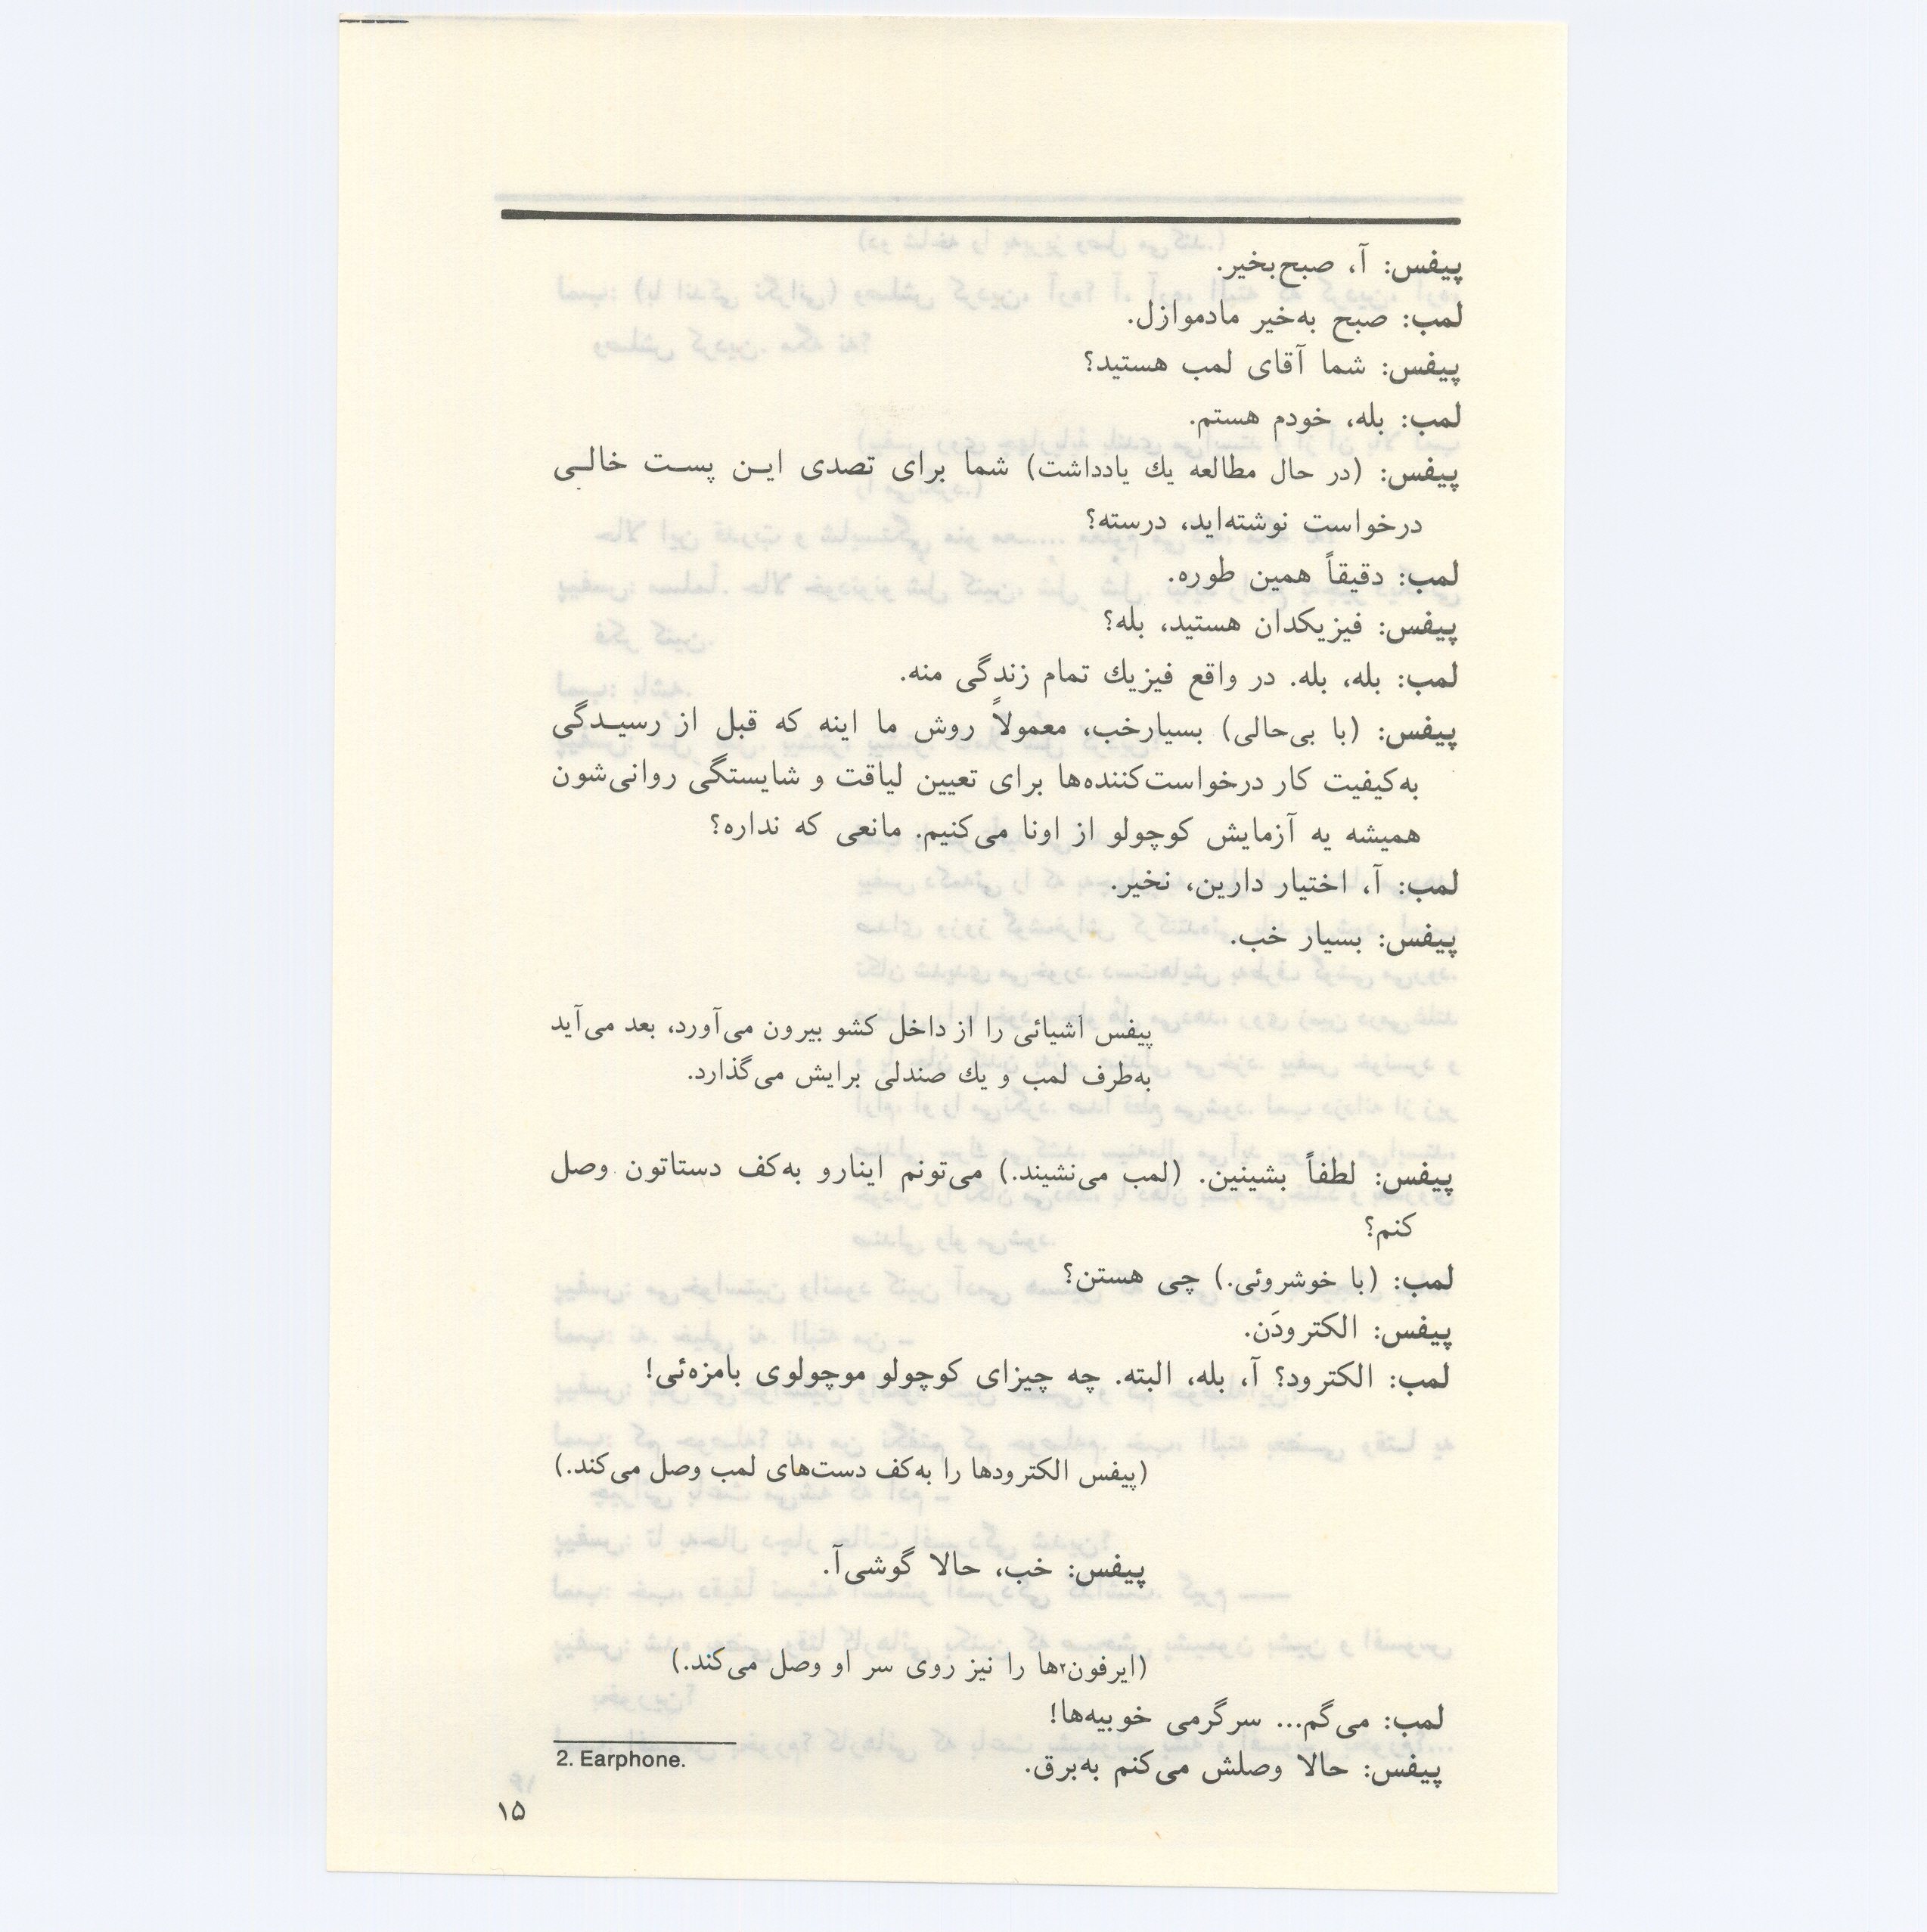 پیفس: آ، صبح‌بخیر.
لمب: صبح به‌خیر مادموازل.
پیفس: شما آقای لمب هستید؟
لمب: بله، خودم هستم.
پیفس: (در حال مطالعه یك یادداشت) شما برای تصدی ایـن پسـت خالـی
درخواست نوشته‌اید، درسته؟
لمب: دقیقاً همین طوره.
پیفس: فیزیکدان هستید، بله؟
لمب: بله، بله. در واقع فیزیك تمام زندگی منه.
پیفس: (با بی‌حالی) بسیارخب، معمولاً روش ما اینه که قبل از رسیـدگی
به‌کیفیت کار درخواست‌کننده‌ها برای تعیین لیاقت و شایستگی روانی‌شون
همیشه یه آزمایش کوچولو از اونا می‌کنیم. مانعی که نداره؟
لمب: آ، اختیار دارین، نخیر.
پیفس: بسیار خب.
پیفس اشیائی را از داخل کشو بیرون می‌آورد، بعد می‌آید
به‌طرف لمب و یك صندلی برایش می‌گذارد.
پیفس: لطفاً بشینین. (لمب می‌نشیند.) می‌تونم اینارو به‌کف دستاتون وصل
کنم؟
لمب: (با خوشروئی.) چی هستن؟
پیفس: الکترودَن.
لمب: الکترود؟ آ، بله، البته. چه چیزای کوچولو موچولوی بامزه‌ئی!
(پیفس الکترودها را به‌کف دست‌های لمب وصل می‌کند.)
پیفس: خب، حالا گوشی‌آ.
(ایرفون۲ها را نیز روی سر او وصل می‌کند.)
لمب: می‌گم... سرگرمی خوبیه‌ها!
پیفس: حالا وصلش می‌کنم به‌برق.
2. Earphone.
۱۵